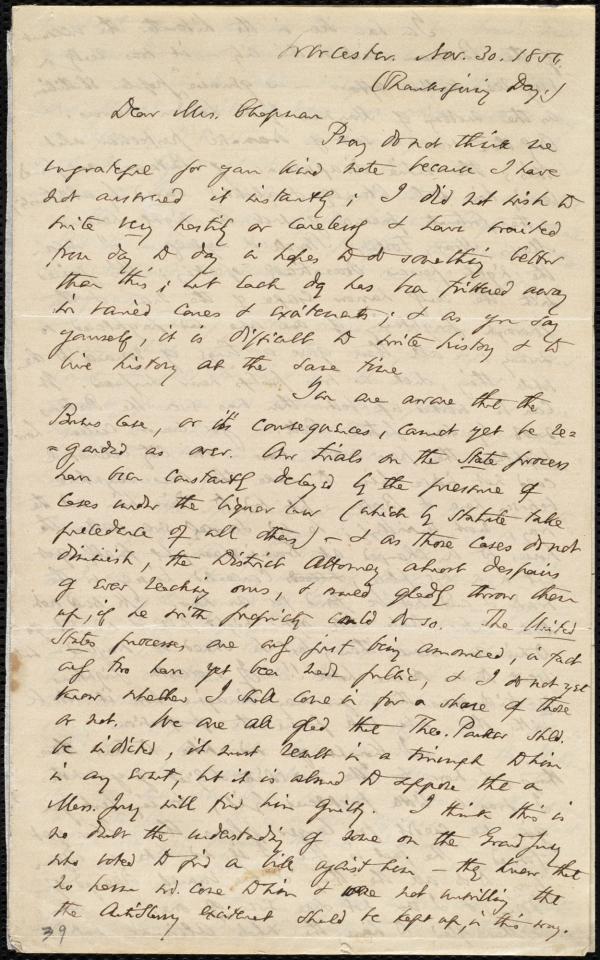 Worcester. Nov. 30. 1854.
(Thanksgiving Day.)
Dear Mrs. Chapman
Pray do not think me
ungrateful for your kind note because I have
not answered it instantly; I did not wish to
write very hastily or carelessly & have waited
from day to day in hopes to do something better
than this; but each day has been frittered away
in varied cares & excitements; & as you say
yourself, it is difficult to write history & to
live history at the same time
You are aware that the
Burns case, or its consequences, cannot yet be re=
=garded as over. Our trials on the State process
have been constantly delayed by the pressure of
cases under the liquor law (which by statute take
precedence of all others) - & as those cases do not
diminish, the District Attorney almost despairs
of ever reaching ours, & would gladly throw them
up, if he with propriety could do so. The United
States processes are only just being announced, in fact
only two have yet been made public, & I do not yet
know whether I shall come in for a share of those
or not. We are all glad that Theo. Parker shld.
be indicted, it must result in a triumph to him
in any event, but it is absurd to suppose that a
Mass. Jury will find him guilty. I think this is
no doubt the understanding of some on the Grand Jury
who voted to find a bill against him - they knew that
no harm wd. come to him & were not unwilling that
the AntiSlavery excitement should be kept up, in this way.
39